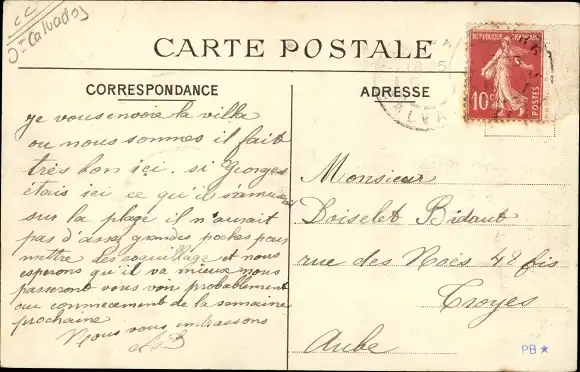 CC
Ст Calvados
CARTE POSTALE
CORRESPONDANCE
ADRESSE
REPUBLIQUE FRANÇAISE
10c
POSTES
je vous envoie la villa
ou nous sommes il fait
très bon ici. si Georges
étais ici ce qu'il s'amuserait
sur la plage il n'aurait
pas d'assez grandes poches pour
mettre les coquillage et nous
esperons qu'il va mieux nous
passeront vous voir probablement
au commecement de la semaine
prochaine
Nous vous embrassons
Monsieur
Doiselet Bidaut
rue des Noës 48 bis
Troyes
Aube
PB★